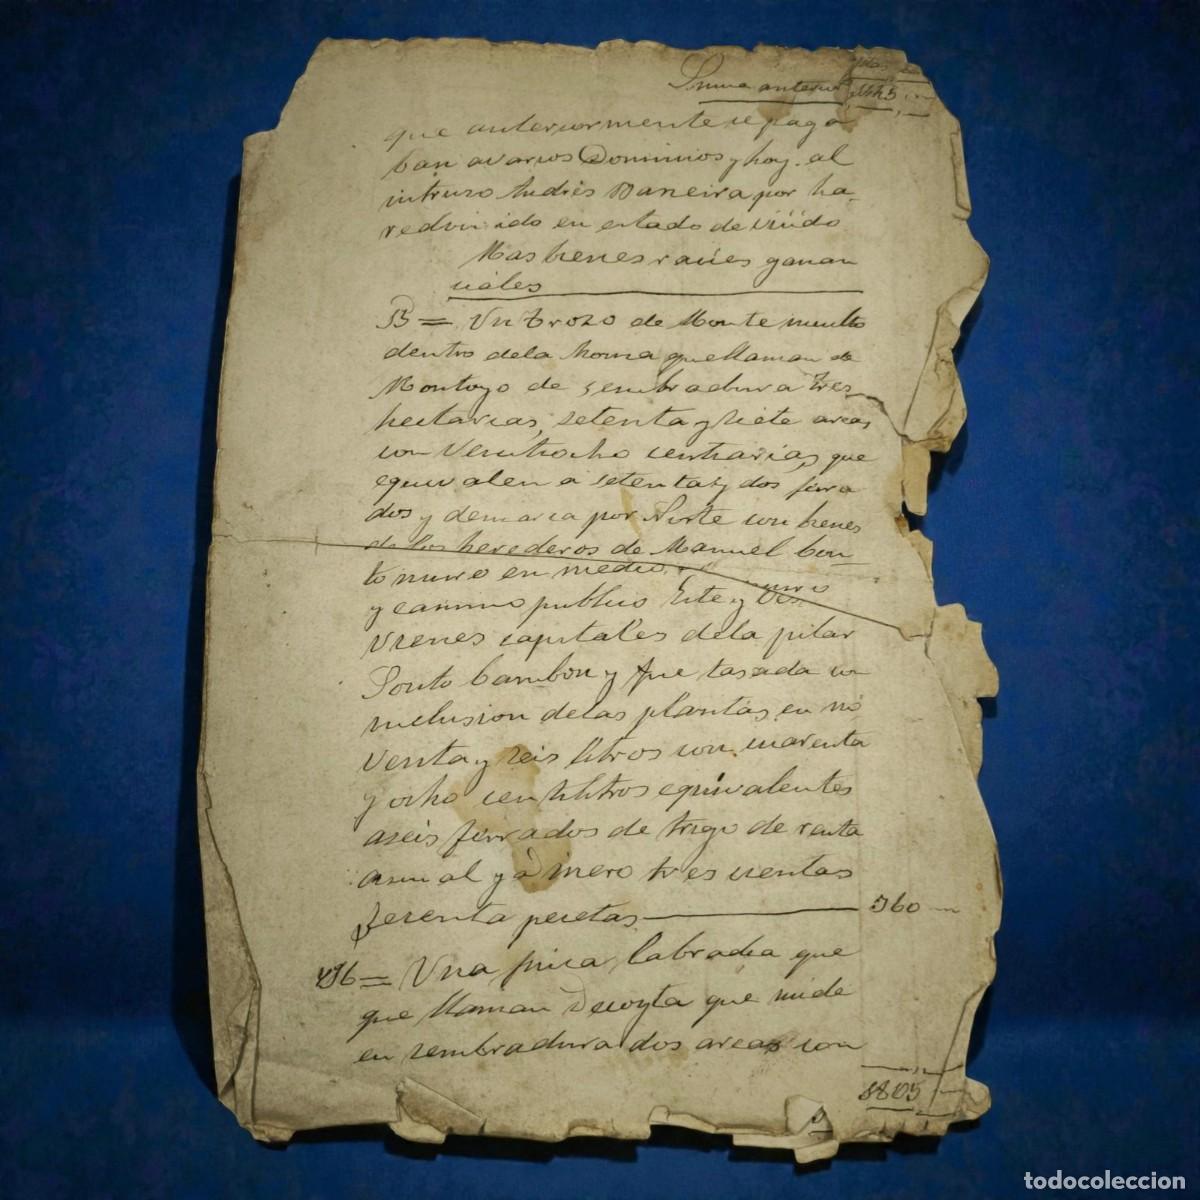 Suma anterior 8445
que anteriormente se paga
ban a varios Dominios y hoy al
intruso Andrés Baneira por ha-
redimido en estado de viúdo
Mas bienes raices ganan
ciales
= Un trozo de Monte inculto
dentro de la que llaman de
Montoyo de sembradura tres
hectarias, setenta y siete areas
con Veintiocho centiarias que
equivalen a setenta y dos ferra
dos y demarca por Norte con bienes
de los herederos de Manuel Cou
to muro en medio
y camino publico Este y
Vienes capitales de la pilar
Souto Cambon y fue tasada con
inclusion de las plantas en no
venta y seis litros con cuarenta
y ocho centilitros equivalentes
a seis ferrados de trigo de renta
anual y dinero tres cientas
sesenta pesetas 360
= Una pieza labradia que
que llaman que mide
en sembradura dos areas con
8805
todocoleccion